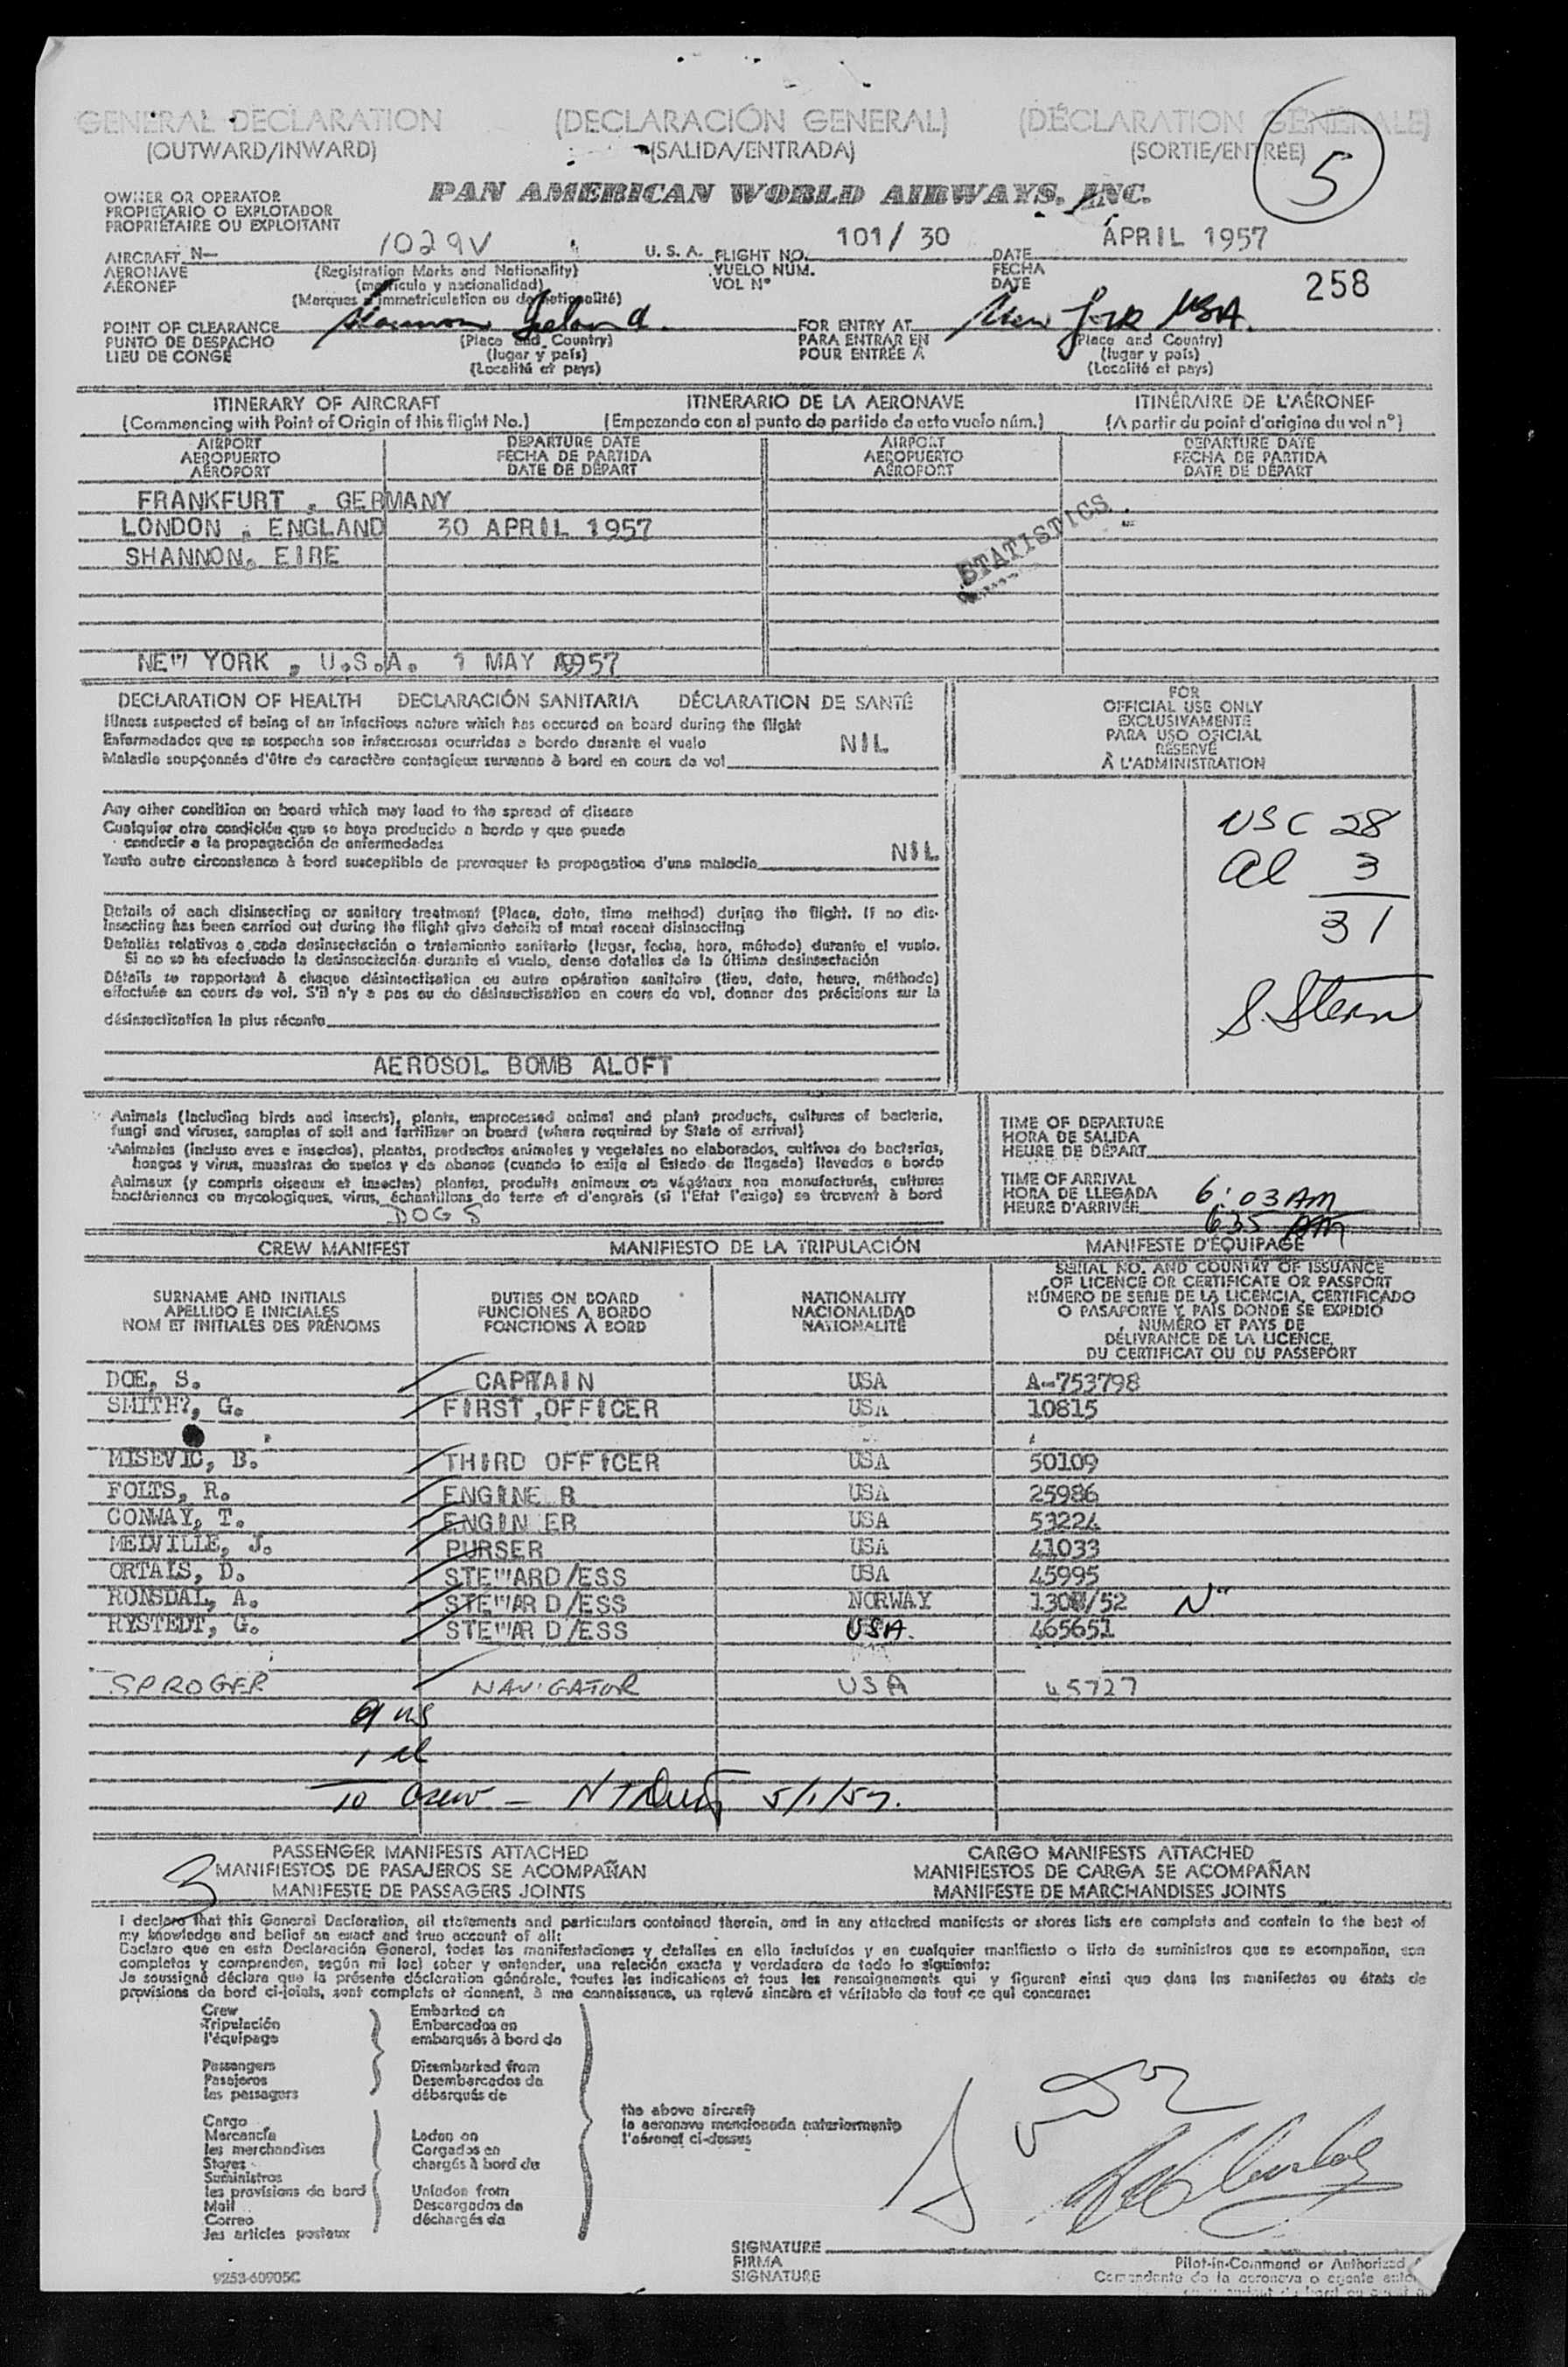 GENERAL DECLARATION (DECLARACIÓN GENERAL) (DÉCLARATION GÉNÉRALE)
(OUTWARD/INWARD) (SALIDA/ENTRADA) (SORTIE/ENTRÉE)
5
OWNER OR OPERATOR
PROPIETARIO O EXPLOTADOR
PROPRIÉTAIRE OU EXPLOITANT
PAN AMERICAN WORLD AIRWAYS, INC.
AIRCRAFT N— 1029V U. S. A. FLIGHT NO. 101/ 30 DATE APRIL 1957
AERONAVE (Registration Marks and Nationality) VUELO NÚM. FECHA
AÉRONEF (matrícula y nacionalidad) VOL Nº DATE 258
(Marques d'immatriculation ou de nationalité)
POINT OF CLEARANCE Shannon Ireland. FOR ENTRY AT New York USA.
PUNTO DE DESPACHO (Place and Country) PARA ENTRAR EN (Place and Country)
LIEU DE CONGÉ (lugar y país) POUR ENTRÉE À (lugar y país)
(Localité et pays) (Localité et pays)
ITINERARY OF AIRCRAFT ITINERARIO DE LA AERONAVE ITINÉRAIRE DE L'AÉRONEF
(Commencing with Point of Origin of this flight No.) (Empezando con el punto de partida de este vuelo núm.) (A partir du point d'origine du vol nº)
AIRPORT DEPARTURE DATE AIRPORT DEPARTURE DATE
AEROPUERTO FECHA DE PARTIDA AEROPUERTO FECHA DE PARTIDA
AÉROPORT DATE DE DÉPART AÉROPORT DATE DE DÉPART
FRANKFURT , GERMANY
LONDON , ENGLAND 30 APRIL 1957
SHANNON, EIRE
STATISTICS
NEW YORK , U.S.A. 1 MAY 1957
DECLARATION OF HEALTH DECLARACIÓN SANITARIA DÉCLARATION DE SANTÉ
Illness suspected of being of an infectious nature which has occured on board during the flight
Enfermedades que se sospecha son infecciosas ocurridas a bordo durante el vuelo NIL
Maladie soupçonnée d'être de caractère contagieux survenue à bord en cours de vol
Any other condition on board which may lead to the spread of disease
Cualquier otra condición que se haya producido a bordo y que pueda
conducir a la propagación de enfermedades
Toute autre circonstance à bord susceptible de provoquer la propagation d'une maladie NIL
Details of each disinsecting or sanitary treatment (Place, date, time method) during the flight. If no dis-
insecting has been carried out during the flight give details of most recent disinsecting
Detalles relativos a cada desinsectación o tratamiento sanitario (lugar, fecha, hora, método) durante el vuelo.
Si no se ha efectuado la desinsectación durante el vuelo, dense detalles de la última desinsectación
Détails se rapportant à chaque désinsectisation ou autre opération sanitaire (lieu, date, heure, méthode)
effectuée en cours de vol. S'il n'y a pas eu de désinsectisation en cours de vol, donner des précisions sur la
désinsectisation la plus récente
AEROSOL BOMB ALOFT
FOR
OFFICIAL USE ONLY
EXCLUSIVAMENTE
PARA USO OFICIAL
RÉSERVÉ
À L'ADMINISTRATION
USC 28
al 3
31
S. Stern
Animals (including birds and insects), plants, unprocessed animal and plant products, cultures of bacteria,
fungi and viruses, samples of soil and fertilizer on board (where required by State of arrival)
Animales (incluso aves e insectos), plantas, productos animales y vegetales no elaborados, cultivos de bacterias,
hongos y virus, muestras de suelos y de abonos (cuando lo exija el Estado de llegada) llevados a bordo
Animaux (y compris oiseaux et insectes) plantes, produits animaux ou végétaux non manufacturés, cultures
bactériennes ou mycologiques, virus, échantillons de terre et d'engrais (si l'État l'exige) se trouvant à bord
DOGS
TIME OF DEPARTURE
HORA DE SALIDA
HEURE DE DÉPART
TIME OF ARRIVAL
HORA DE LLEGADA
HEURE D'ARRIVÉE 6:03 AM
635 AM
CREW MANIFEST MANIFIESTO DE LA TRIPULACIÓN MANIFESTE D'ÉQUIPAGE
SURNAME AND INITIALS
APELLIDO E INICIALES
NOM ET INITIALES DES PRÉNOMS
DUTIES ON BOARD
FUNCIONES A BORDO
FONCTIONS À BORD
NATIONALITY
NACIONALIDAD
NATIONALITÉ
SERIAL NO. AND COUNTRY OF ISSUANCE
OF LICENCE OR CERTIFICATE OR PASSPORT
NÚMERO DE SERIE DE LA LICENCIA, CERTIFICADO
O PASAPORTE Y PAÍS DONDE SE EXPIDIÓ
NUMÉRO ET PAYS DE
DÉLIVRANCE DE LA LICENCE,
DU CERTIFICAT OU DU PASSEPORT
DOE, S. CAPTAIN USA A-753798
SMITH?, G. FIRST ,OFFICER USA 10815
MISEVIC, B. THIRD OFFICER USA 50109
FOLTS, R. ENGINE R USA 25986
CONWAY, T. ENGIN ER USA 53224
MELVILLE, J. PURSER USA 41033
ORTAIS, D. STEWARD/ESS USA 45995
RONSDAL, A. STEWAR D/ESS NORWAY /52
RYSTEDT, G. STEWAR D/ESS USA. 465651
SPROGER NAVIGATOR USA 45727
9 us
1 al
10 crew — 5/1/57.
PASSENGER MANIFESTS ATTACHED CARGO MANIFESTS ATTACHED
3 MANIFIESTOS DE PASAJEROS SE ACOMPAÑAN MANIFIESTOS DE CARGA SE ACOMPAÑAN
MANIFESTE DE PASSAGERS JOINTS MANIFESTE DE MARCHANDISES JOINTS
I declare that this General Declaration, all statements and particulars contained therein, and in any attached manifests or stores lists are complete and contain to the best of
my knowledge and belief an exact and true account of all:
Declaro que en esta Declaración General, todas las manifestaciones y detalles en ella incluídos y en cualquier manifiesto o lista de suministros que se acompañan, son
completos y comprenden, según mi leal saber y entender, una relación exacta y verdadera de todo lo siguiente:
Je soussigné déclare que la présente déclaration générale, toutes les indications et tous les renseignements qui y figurent ainsi que dans les manifestes ou états de
provisions de bord ci-joints, sont complets et donnent, à ma connaissance, un relevé sincère et véritable de tout ce qui concerne:
Crew
Tripulación
l'équipage
Passengers
Pasajeros
les passagers
Cargo
Mercancía
les merchandises
Stores
Suministros
les provisions de bord
Mail
Correo
les articles postaux
Embarked on
Embarcados en
embarqués à bord de
Disembarked from
Desembarcados de
débarqués de
Laden on
Cargados en
chargés à bord de
Unladen from
Descargados de
déchargés de
the above aircraft
la aeronave mencionada anteriormente
l'aéronef ci-dessus
SIGNATURE
FIRMA
SIGNATURE
Pilot-in-Command or Authorized
Comandante de la aeronava o agente
9253-60905C